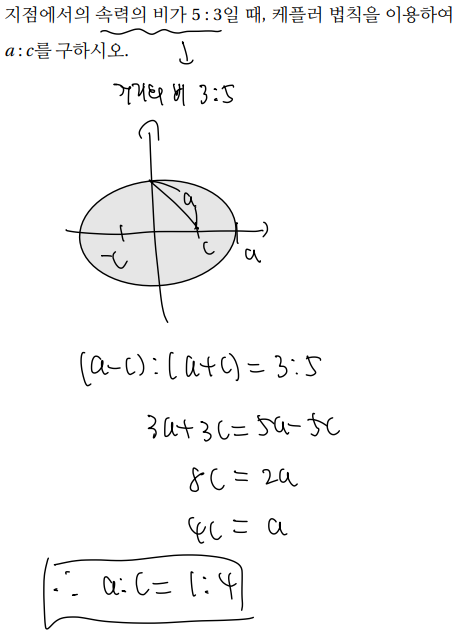 지점에서의 속력의 비가 5 : 3일 때, 케플러 법칙을 이용하여
a : c를 구하시오.
거리의 비 3:5
a
-c c a
(a-c):(a+c)=3:5
3a+3c=5a-5c
8c=2a
4c=a
∴ a:c=1:4